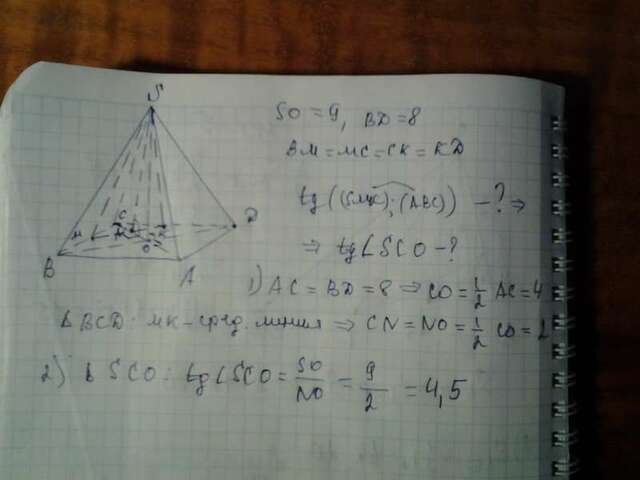 S
SO = 9, BD = 8
BM = MC = CK = KD
tg((SMK);(ABC)) – ? ⇒
⇒ tg∠SCO – ?
M C K D
N
O
B A
1) AC = BD = 8 ⇒ CO = 1/2 AC = 4
Δ BCD: MK – сред. линия ⇒ CN = NO = 1/2 CO = 2
2) Δ SCO: tg∠SCO = SO/NO = 9/2 = 4,5